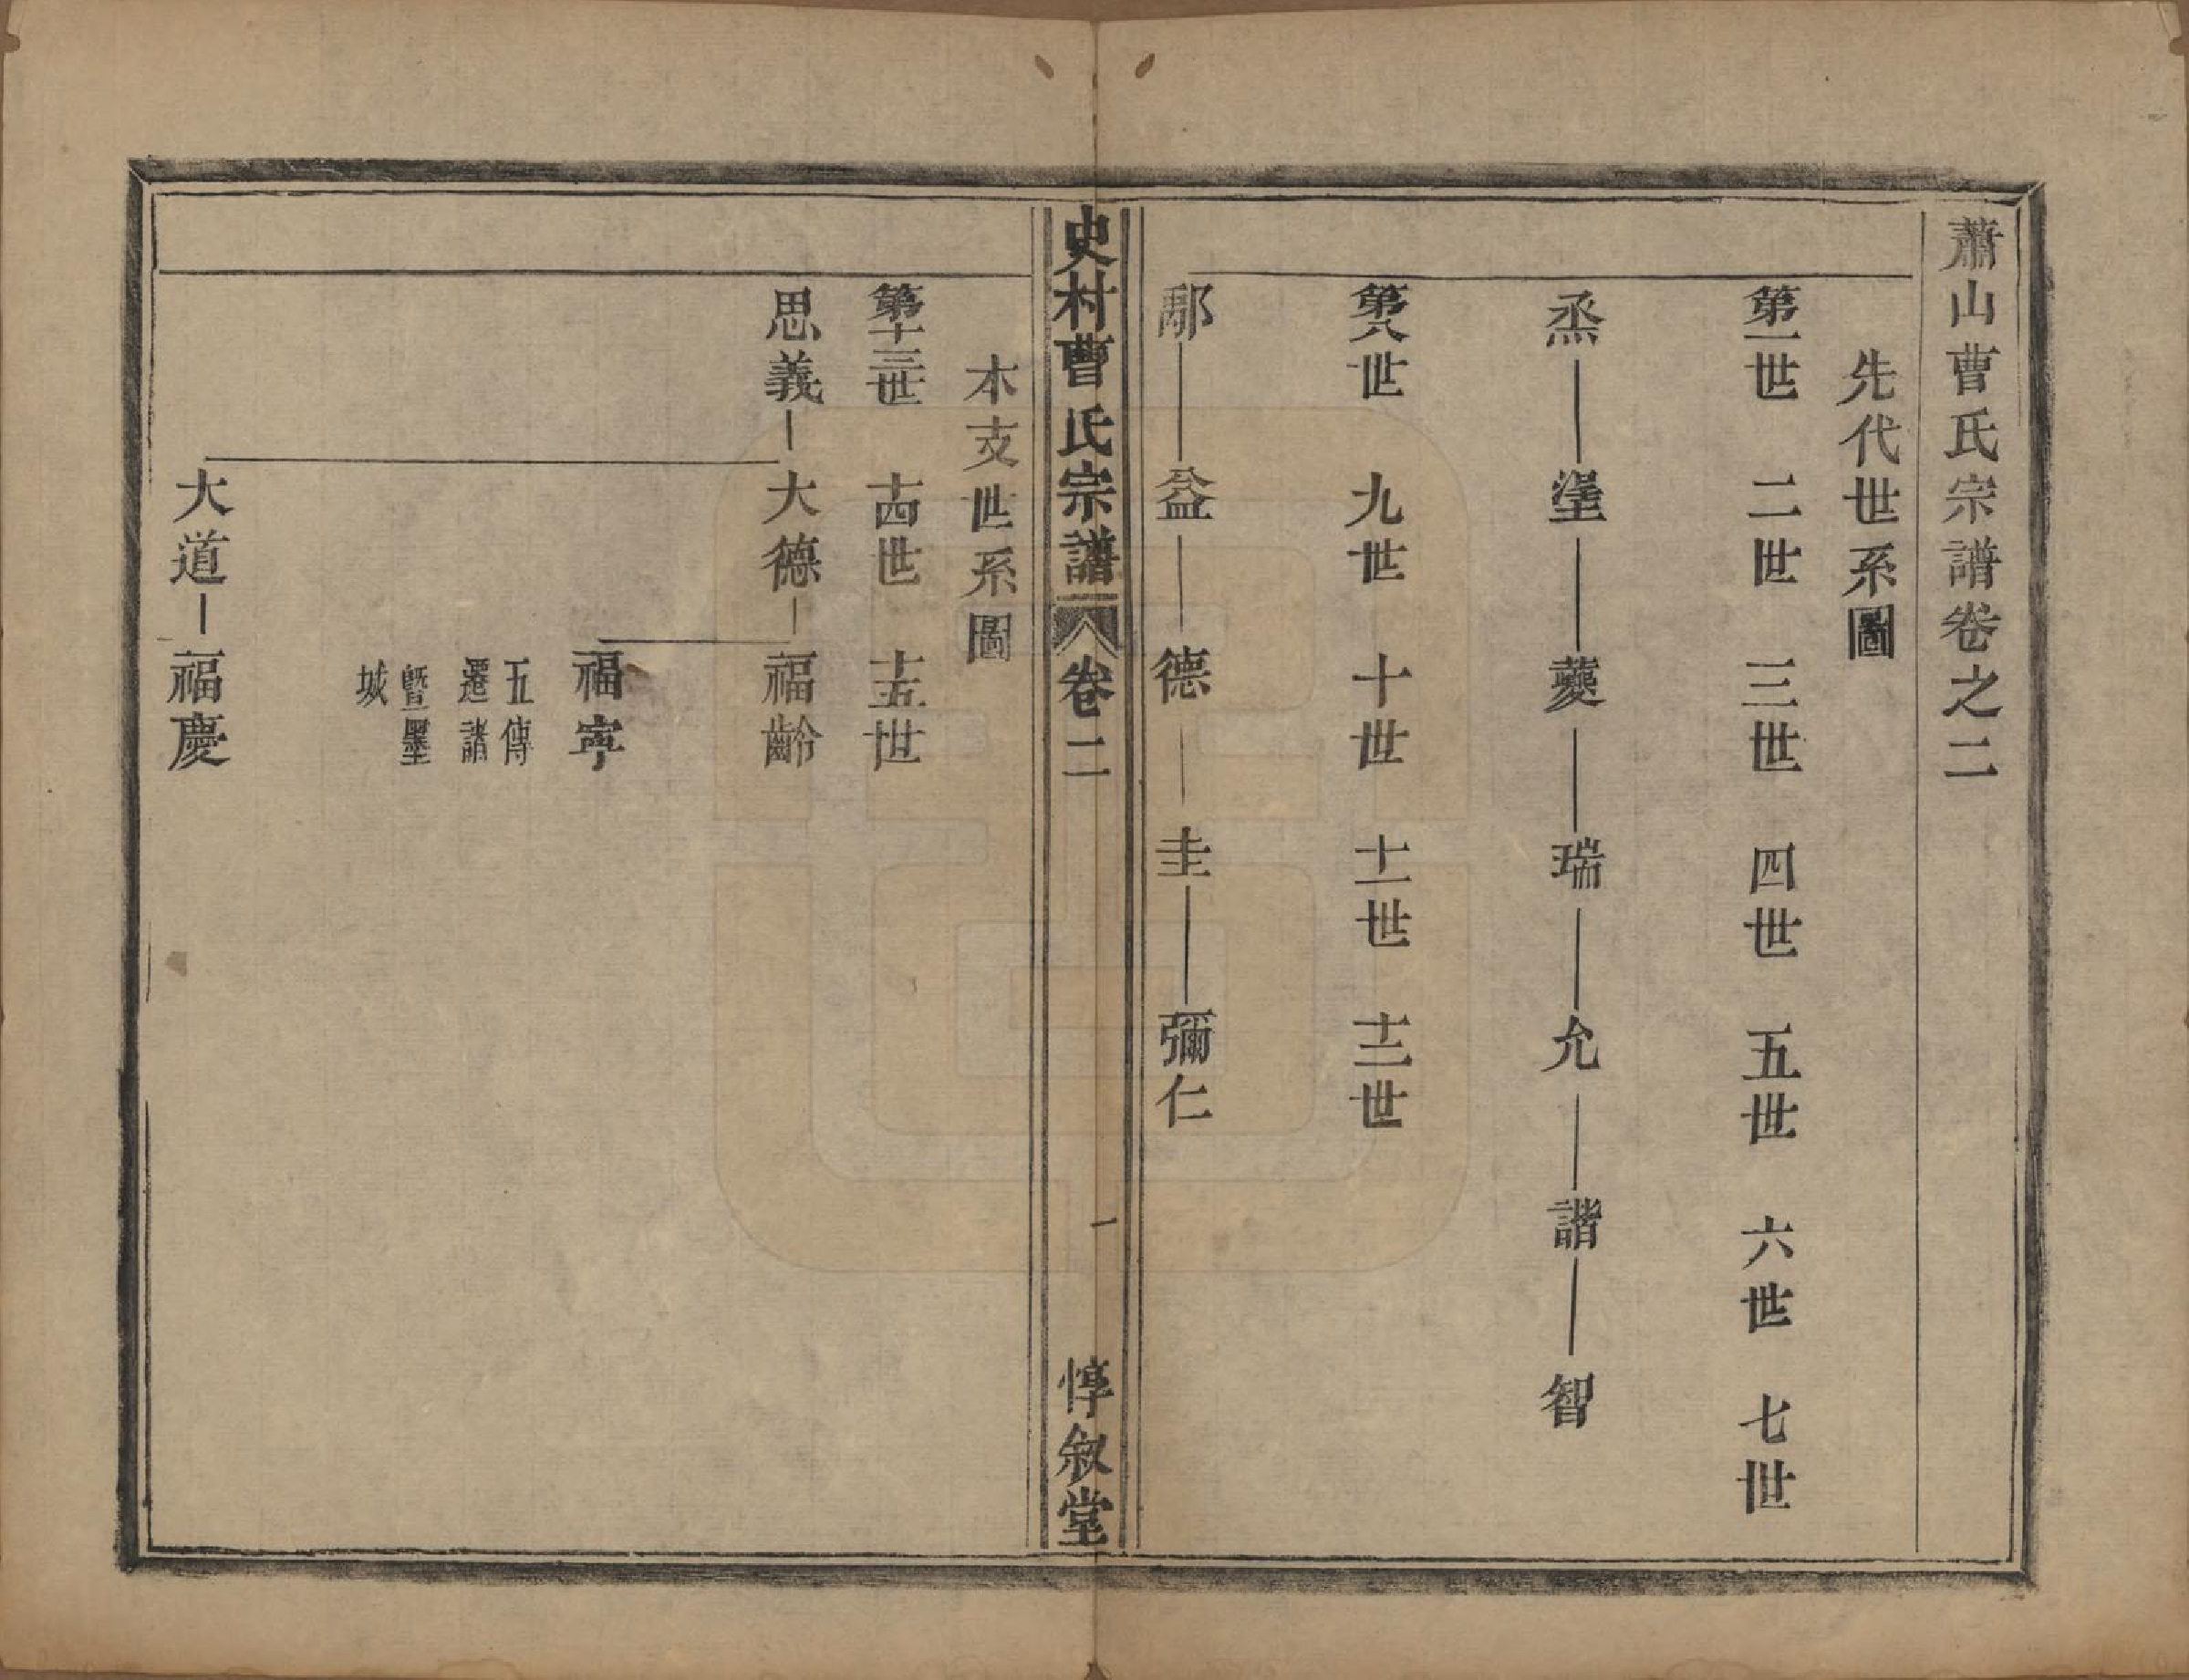 蕭山曹氏宗譜卷之二
先代世系圖
第一世 二世 三世 四世 五世 六世 七世
烝 瑬 蘷 瑞 允 諧 智
第八世 九世 十世 十一世 十二世
鄢 益 德 圭 彌仁
史村曹氏宗譜 卷二 一 惇敘堂
本支世系圖
第十三世 十四世 十五世
思義 大德 福齡
福寧
五傳
遷諸
暨墨
城
大道 福慶